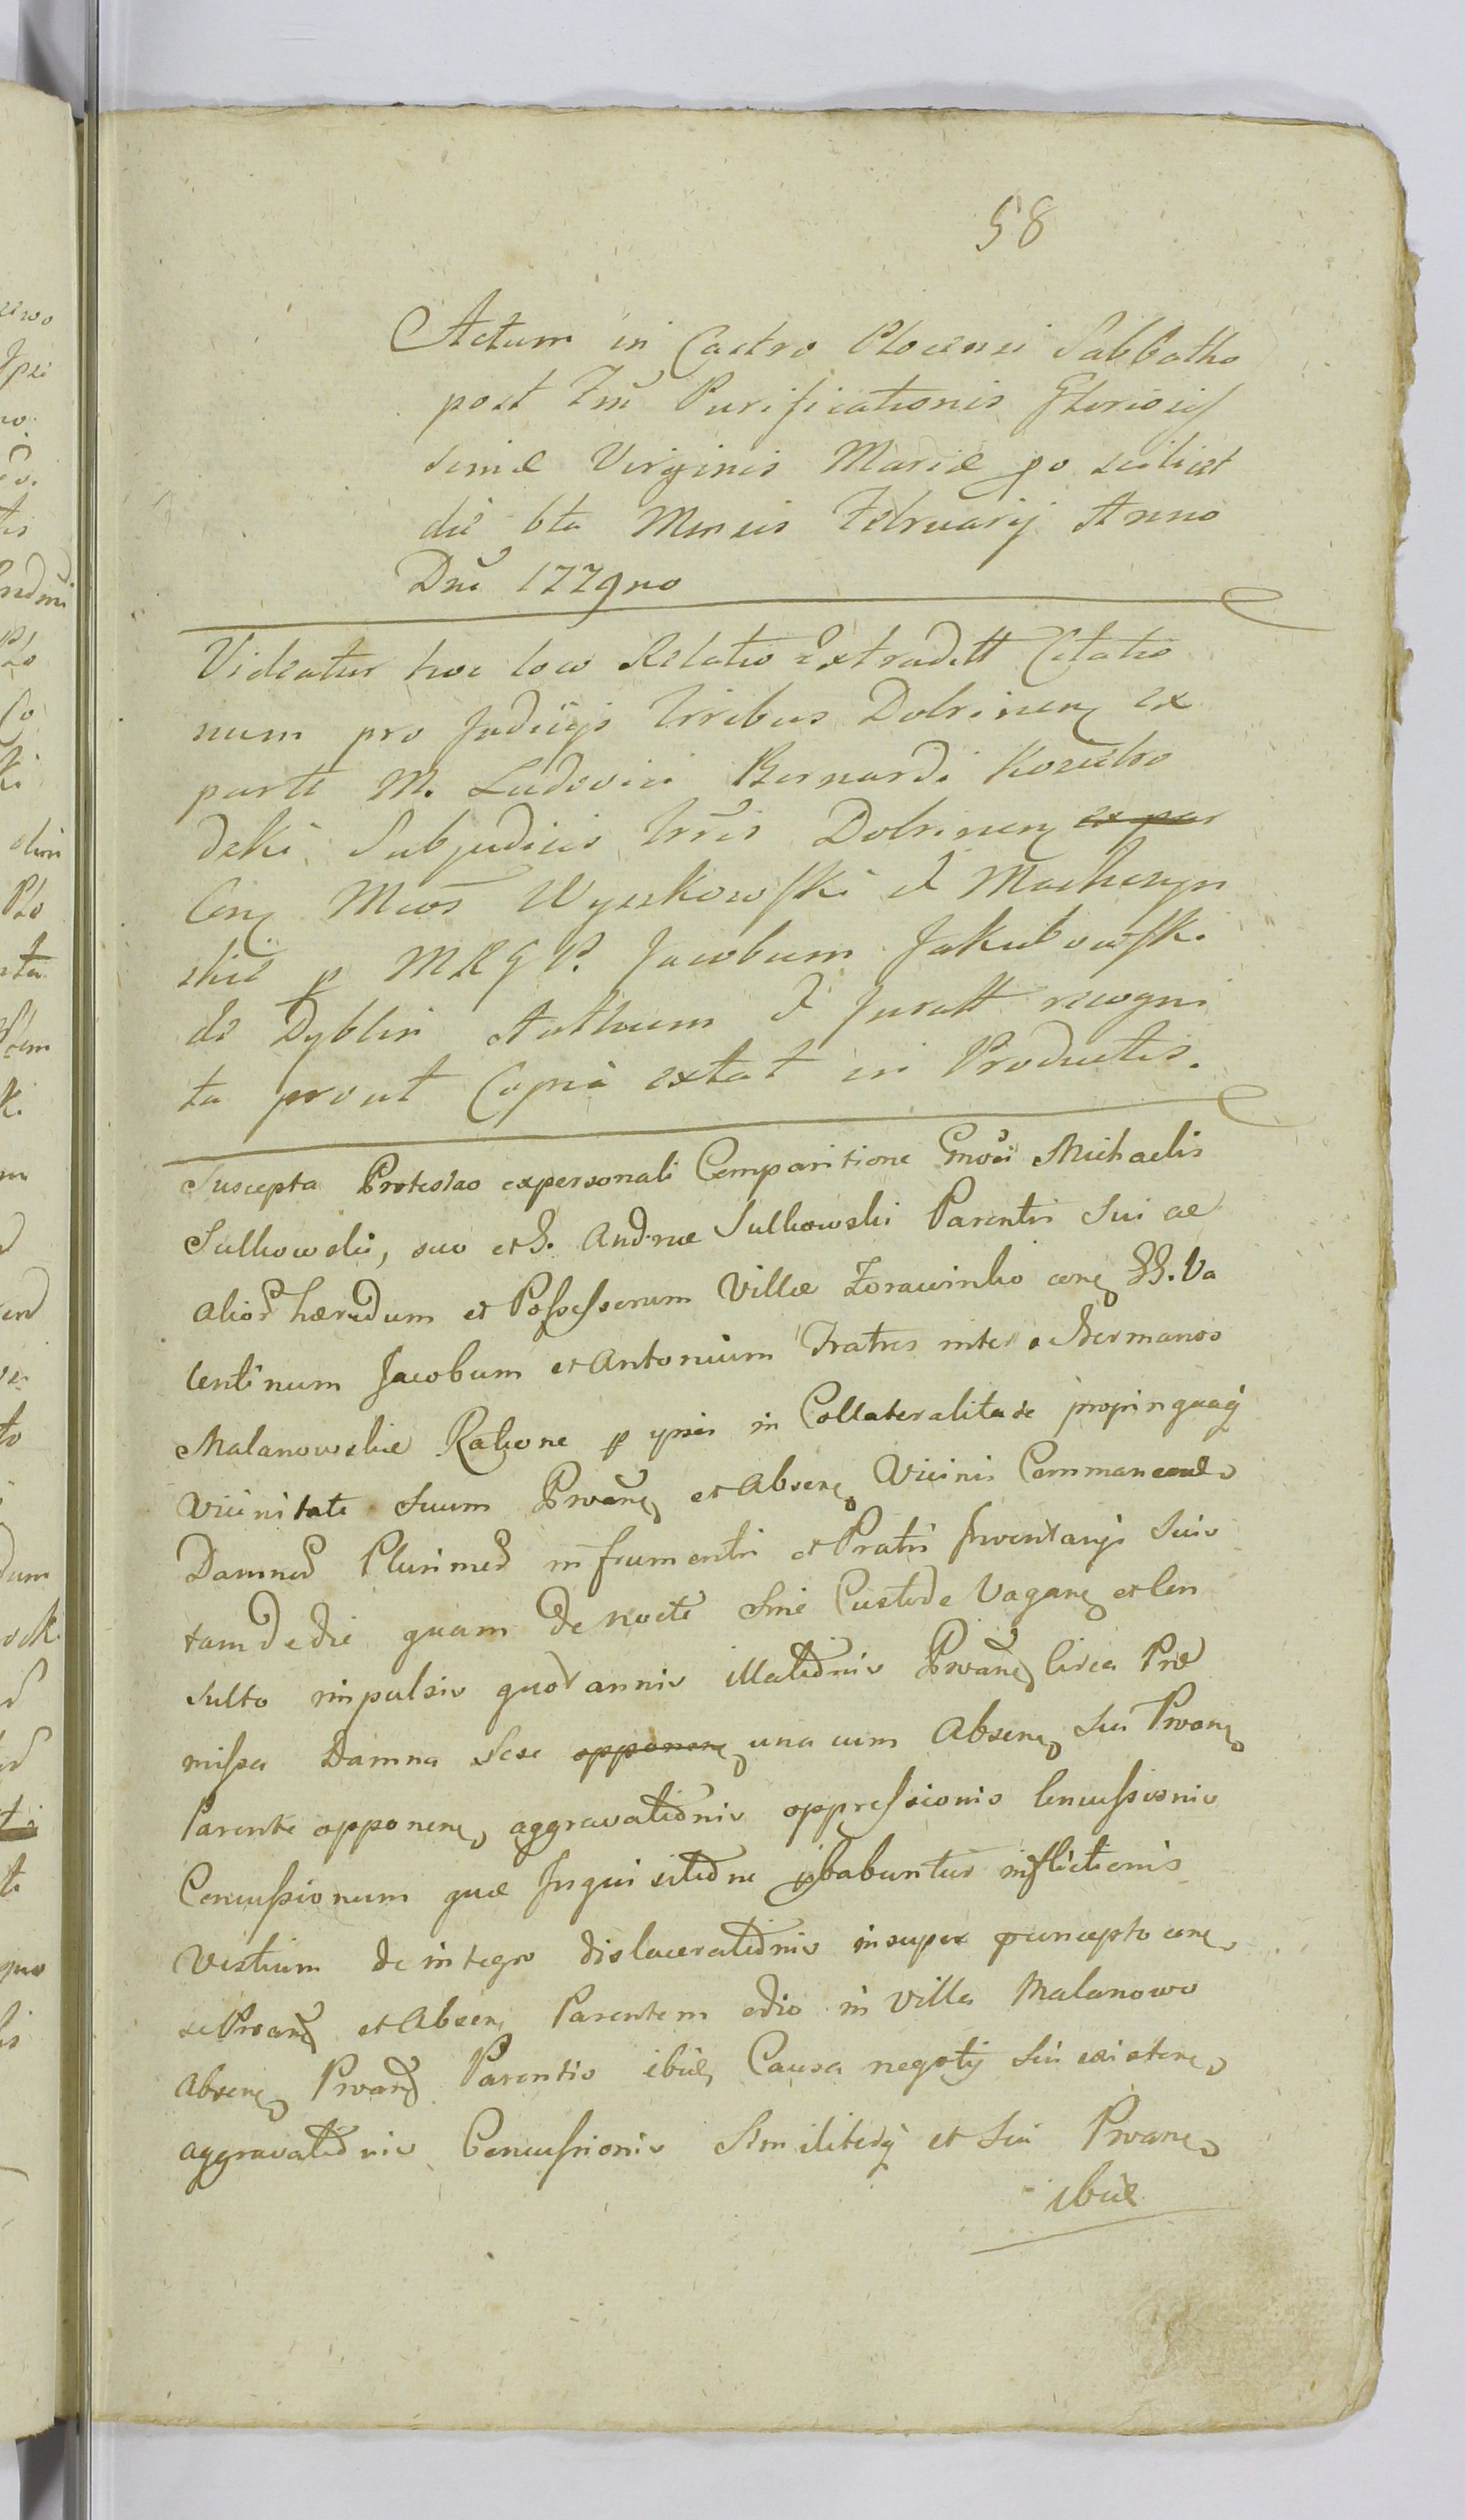 58
Actum in Castro Plocensi Sabbatho
post Fm̃ Purificationis Gloriosis
simæ Virginis Mariæ po scilicet
die 6ta Mensis Februarij Anno
Dni 1779no
Videatur hoc loco Relatio Extraditt Citatio
num pro Judicijs Trribus Dobrinen ex
parte M. Ludovici Bernardi Koziebro
dzki Subjudicis Trris Dobrinen ex par
Con Mcos Wyszkowski et Machczyn
skie p MRGP. Jacobum Jakubowski
de Dyblin Authcum et Juratt recogni
ta prout Copia extat in Productis.
Suscepta Protestao ex personali Comparitione Gnosi Michaelis
Sulkowski, suo et G. Andreæ Sulkowski Parentis Sui ac
alior hæredum et Possessorum Villæ Zorawinko con GG. Va
lentinum Jacobum et Antonium Fratres inter se Germanos
Malanowskie Ratione p ipsos in Collateralitate propinquaq
Vicinitate Suum Proван et Absen Vicinis Commanen
Damnor Plurimor in frumentis et Pratis Inventarijs Suis
tam de die quam de nocte Sine Custode Vagan et Con
sulto impulsis quotannis illationis Proan Circa Præ
missa Damna Sese opponen una cum Absen Sui Proan
Parente opponen, aggravationis oppressionis Concussionis
Concussionum quæ Inquisitione pbabuntur inflictionis
Vestium de integro dislacerationis insuper concepto con
se Proan et Absen Parentem odio in Villa Malanowo
Absen Proan Parentis ibid Causa negotij Sui existen
aggravationis Concussionis Similiterq et Sui Proan
ibid